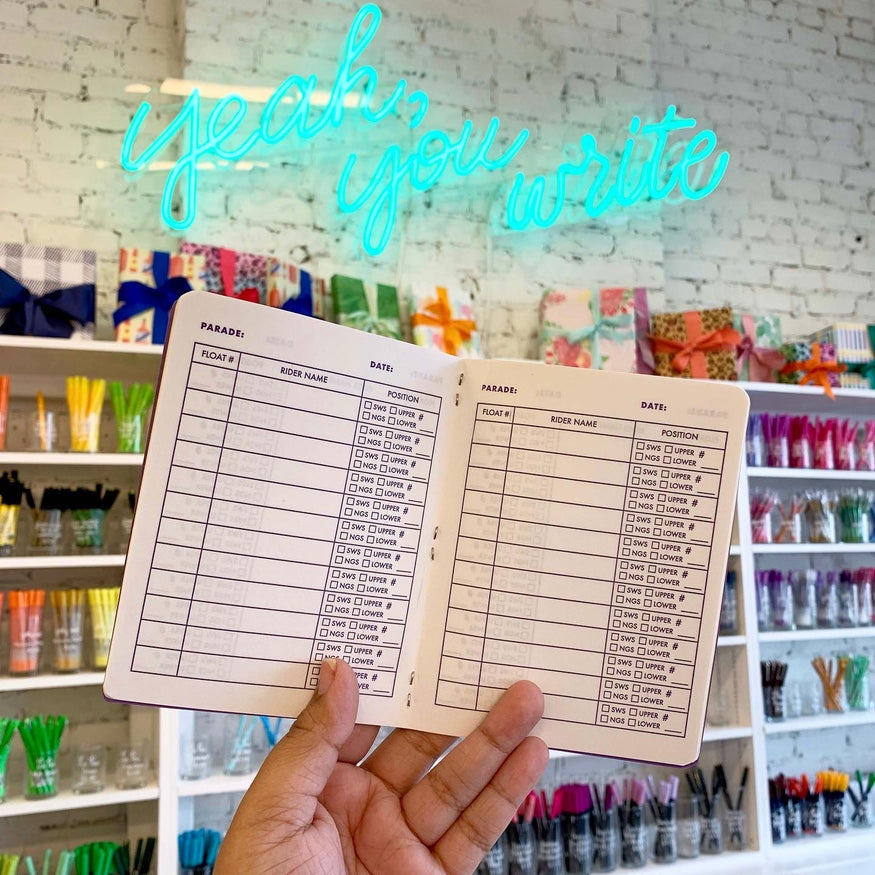 yeah,
you
write
PARADE:
DATE:
FLOAT # RIDER NAME POSITION
SWS UPPER #
NGS LOWER
SWS UPPER #
NGS LOWER
SWS UPPER #
NGS LOWER
SWS UPPER #
NGS LOWER
SWS UPPER #
NGS LOWER
SWS UPPER #
NGS LOWER
SWS UPPER #
NGS LOWER
SWS UPPER #
NGS LOWER
SWS UPPER #
NGS LOWER
SWS UPPER #
NGS LOWER
SWS UPPER #
NGS LOWER
#
LOWER
PARADE:
DATE:
FLOAT # RIDER NAME POSITION
SWS UPPER #
NGS LOWER
SWS UPPER #
NGS LOWER
SWS UPPER #
NGS LOWER
SWS UPPER #
NGS LOWER
SWS UPPER #
NGS LOWER
SWS UPPER #
NGS LOWER
SWS UPPER #
NGS LOWER
SWS UPPER #
NGS LOWER
SWS UPPER #
NGS LOWER
SWS UPPER #
NGS LOWER
SWS UPPER #
NGS LOWER
SWS UPPER #
NGS LOWER